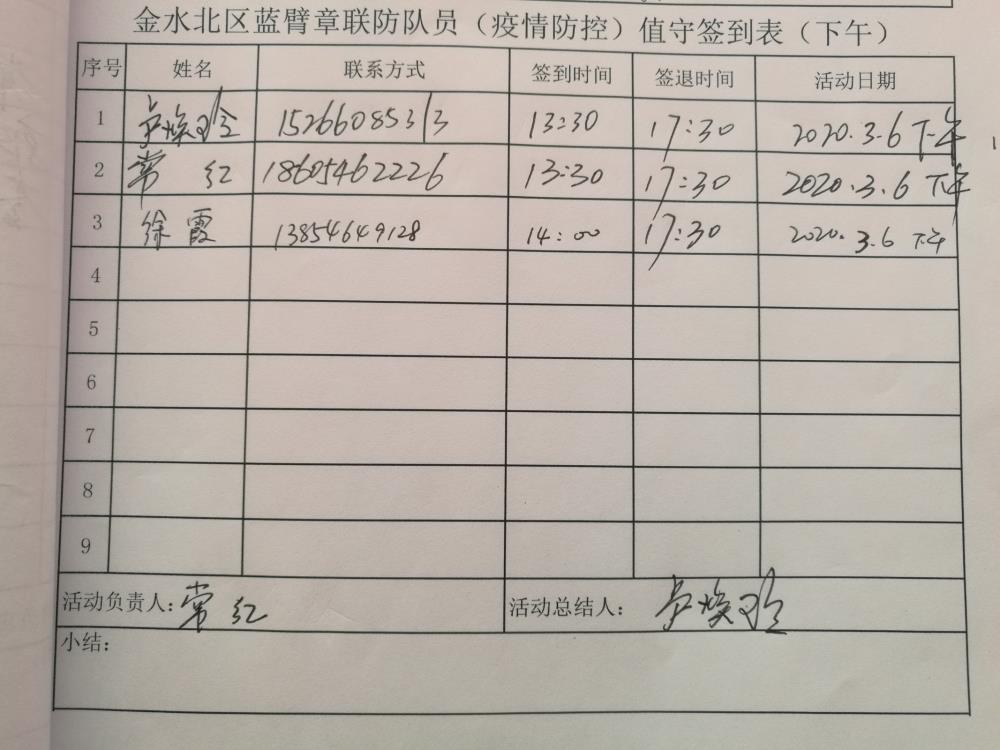 金水北区蓝臂章联防队员（疫情防控）值守签到表（下午）
序号 姓名 联系方式 签到时间 签退时间 活动日期
1 尹焕玲 15266085313 13:30 17:30 2020.3.6 下午
2 常红 18605462226 13:30 17:30 2020.3.6 下午
3 徐霞 13854649128 14:00 17:30 2020.3.6 下午
4
5
6
7
8
9
活动负责人：常红 活动总结人：尹焕玲
小结：